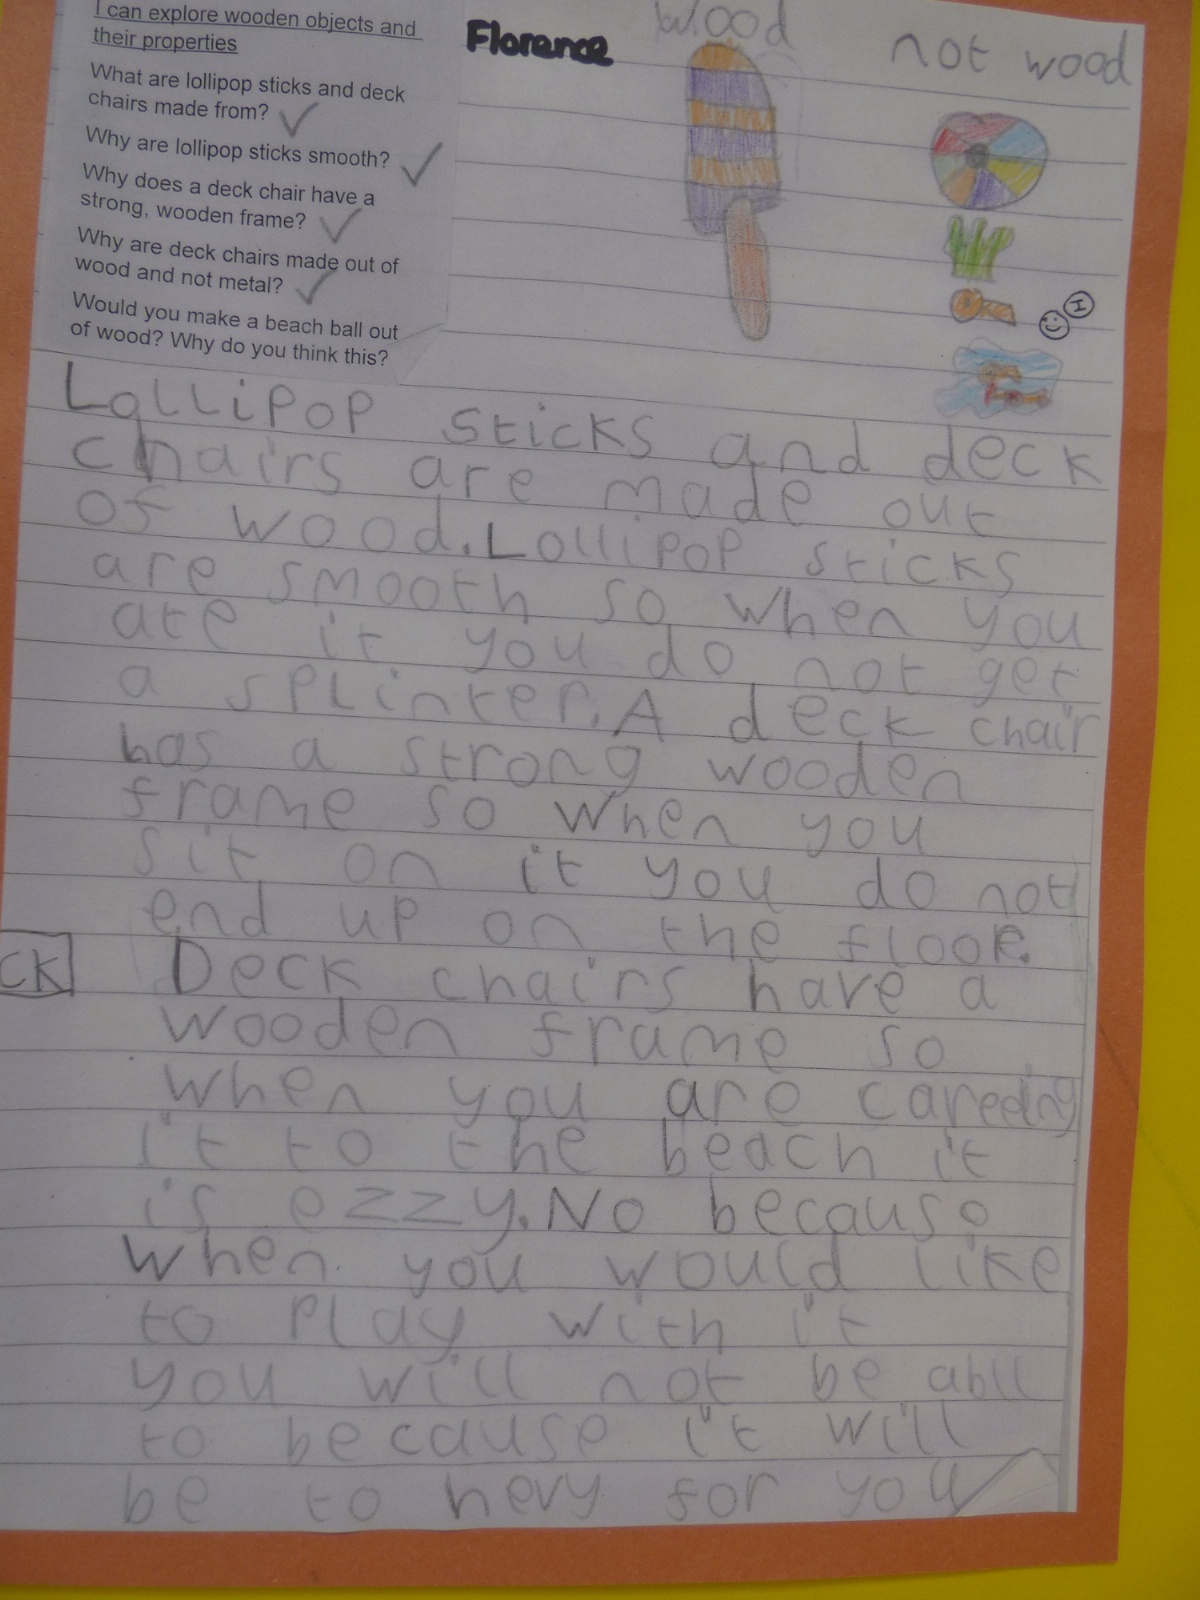 I can explore wooden objects and
their properties
What are lollipop sticks and deck
chairs made from?
Why are lollipop sticks smooth?
Why does a deck chair have a
strong, wooden frame?
Why are deck chairs made out of
wood and not metal?
Would you make a beach ball out
of wood? Why do you think this?
Florence
wood
not wood
I
Lollipop sticks and deck
chairs are made out
of wood. Lollipop sticks
are smooth so when you
ate it you do not get
a splinter. A deck chair
has a strong wooden
frame so when you
sit on it you do not
end up on the floor.
CK
Deck chairs have a
wooden frame so
when you are careeing
it to the beach it
is ezzy. No because
when you would like
to play with it
you will not be abll
to because it will
be to hevy for you